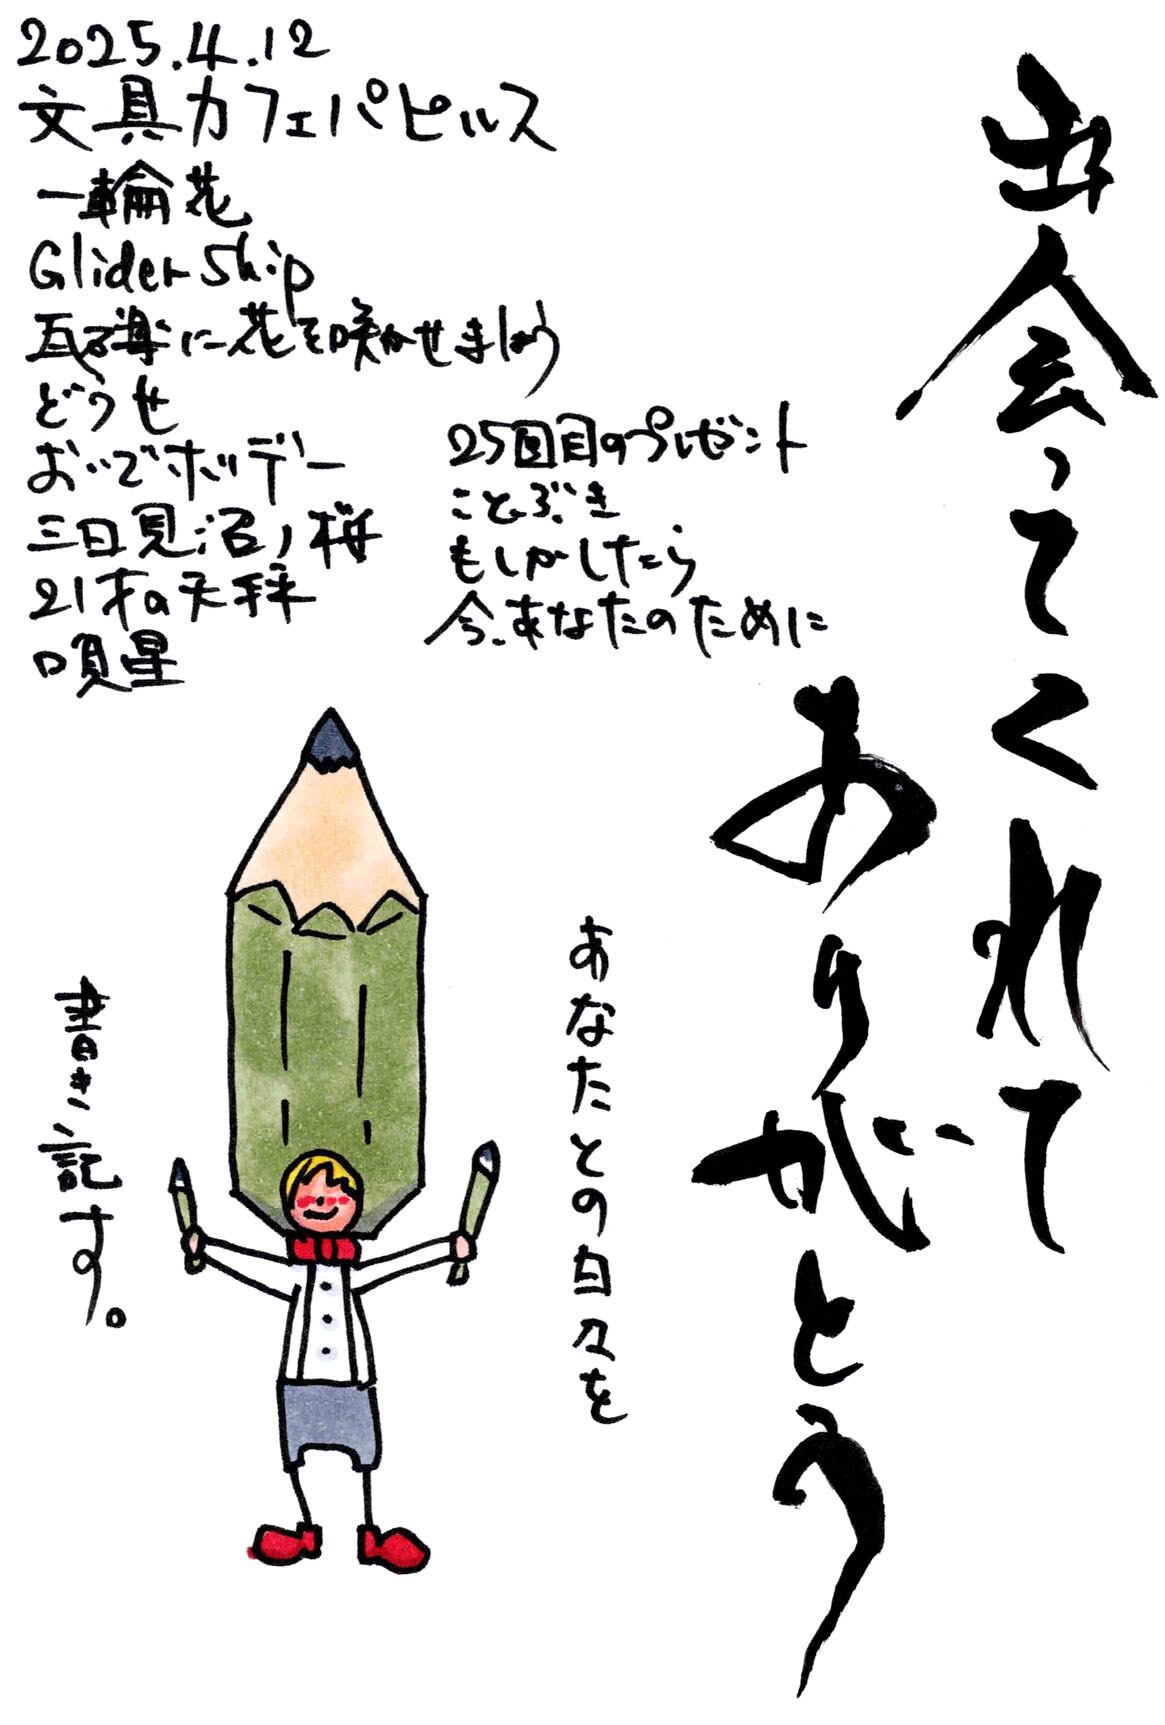 2025.4.12
文具カフェパピルス
一輪花
Glider Ship
瓦礫に花を咲かせましょう
どうせ
おいでホリデー
三日見沼ノ桜
21才の天秤
唄星
25回目のプレゼント
ことぶき
もしかしたら
今、あなたのために
出会ってくれて
ありがとう
あなたとの日々を
書き記す。